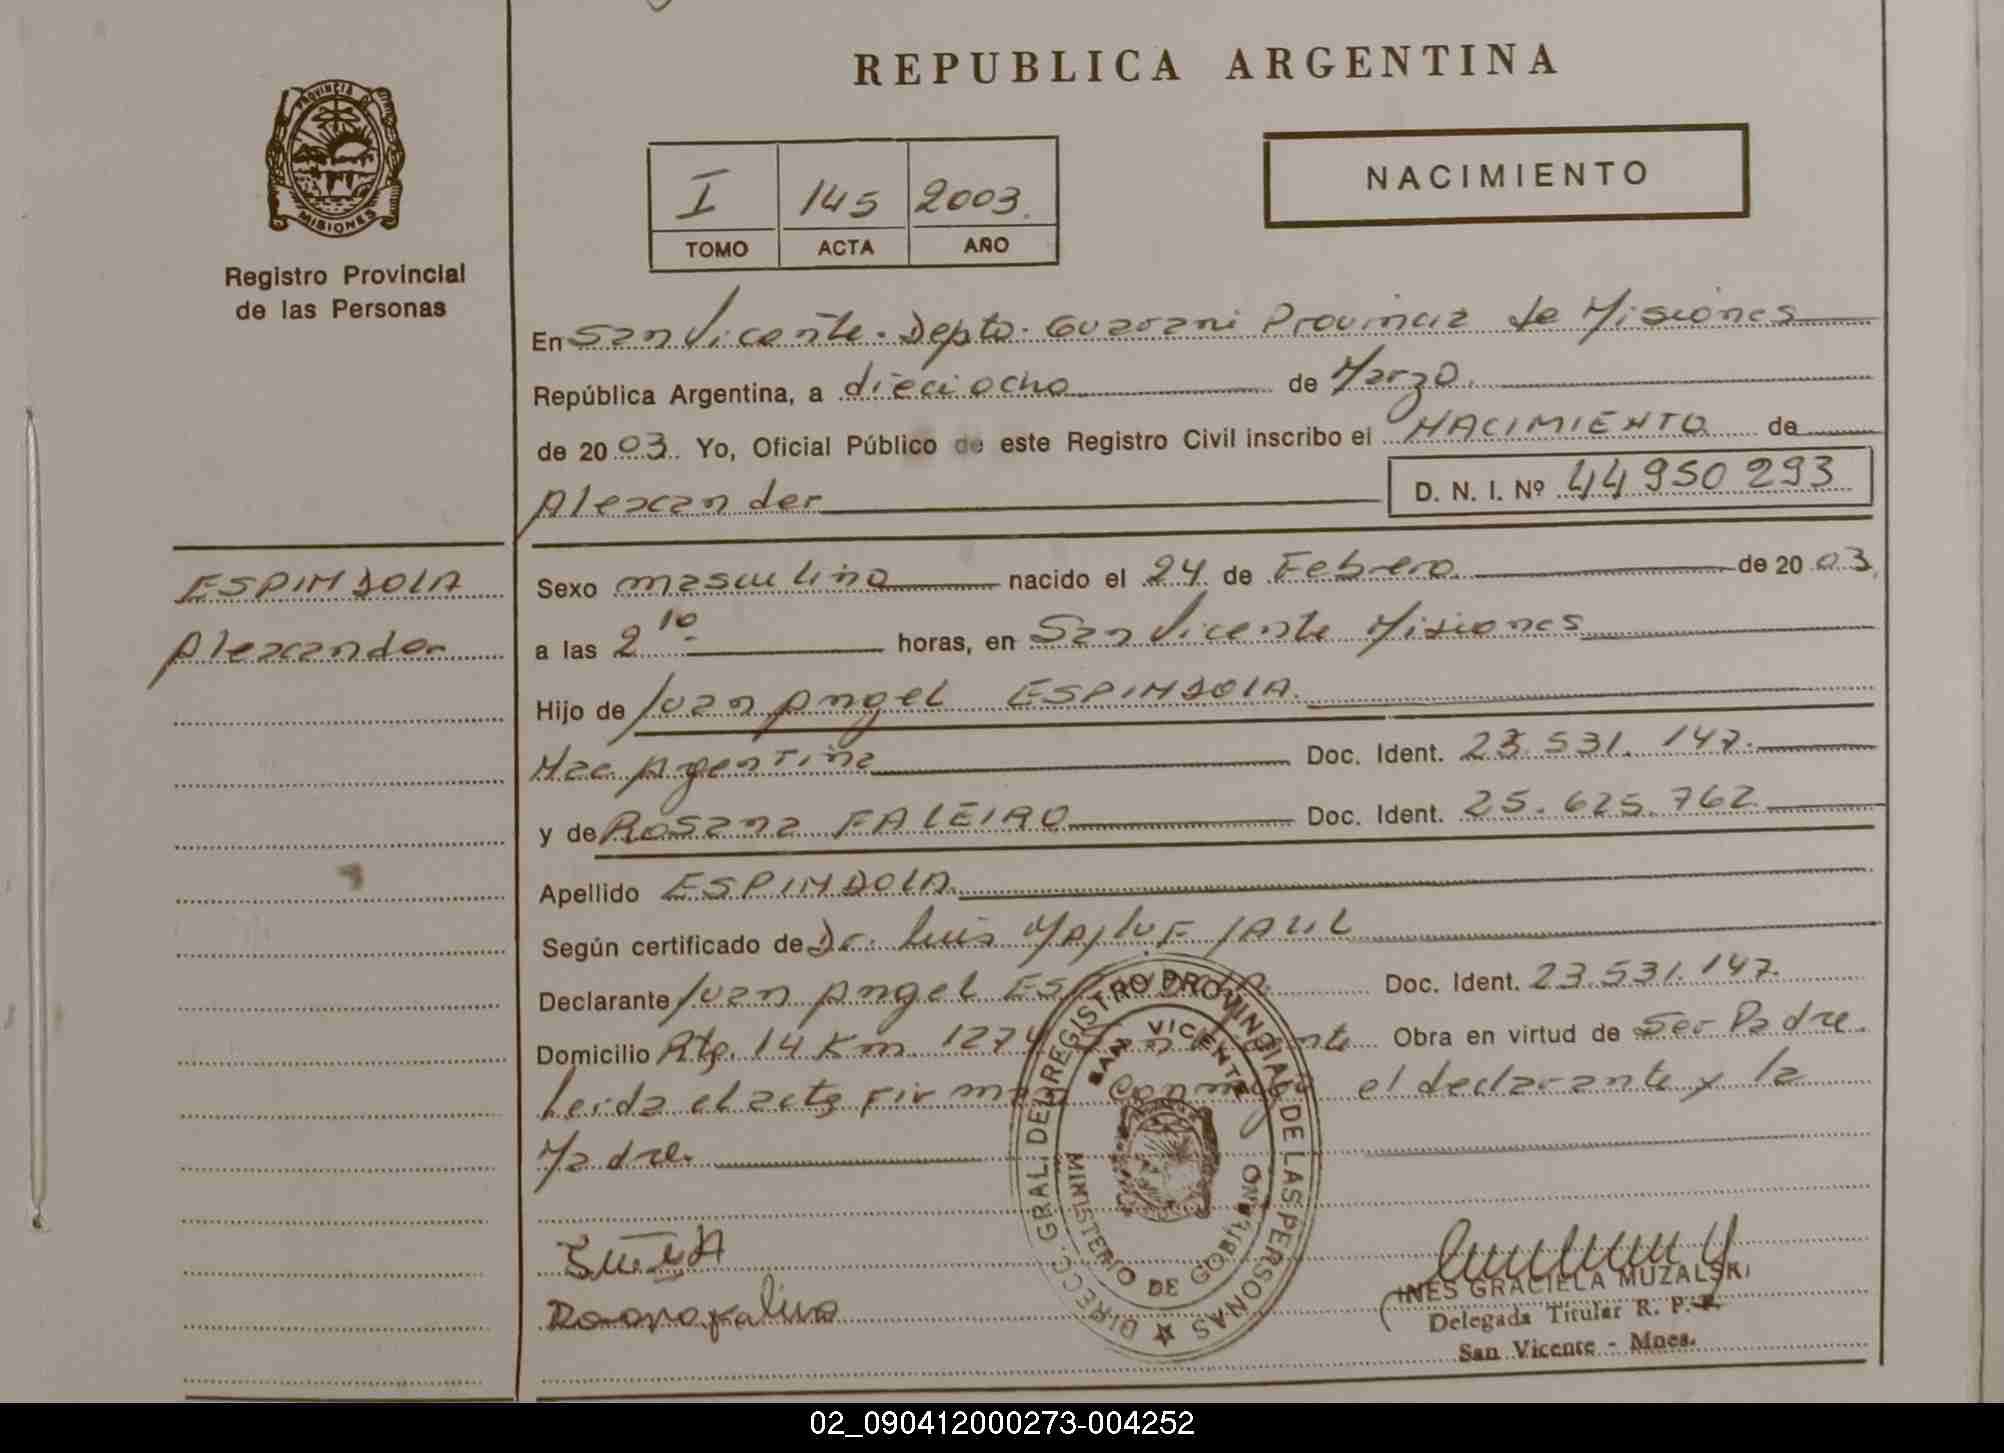 REPUBLICA ARGENTINA
PROVINCIA DE
MISIONES
Registro Provincial
de las Personas
I 145 2003.
TOMO ACTA AÑO
NACIMIENTO
En San Vicente. Depto. Guarani Provincia de Misiones
República Argentina, a dieciocho de Marzo.
de 20 03. Yo, Oficial Público de este Registro Civil inscribo el NACIMIENTO de
Alexander D. N. I. Nº 44 950 293
ESPINDOLA
Alexander
Sexo masculino nacido el 24 de Febrero de 20 03.
a las 2 10 horas, en San Vicente Misiones
Hijo de Juan Angel ESPINDOLA.
Nac. Argentina Doc. Ident. 23.531.147.
y de Rosana FALEIRO Doc. Ident. 25.625.762
Apellido ESPINDOLA.
Según certificado de Dr. Luis JAUL
Declarante Juan Angel Doc. Ident. 23.531.147.
Domicilio Rta. 14 Km. 1274 Obra en virtud de Ser Padre.
Leida el acta firman conmigo el declarante y la
Madre.
DIRECC. GRAL. DEL REGISTRO PROVINCIAL DE LAS PERSONAS
SAN VICENTE
MINISTERIO DE GOBIERNO
INES GRACIELA MUZALSKI
Delegada Titular R. P. P.
San Vicente - Mnes.
02_090412000273-004252